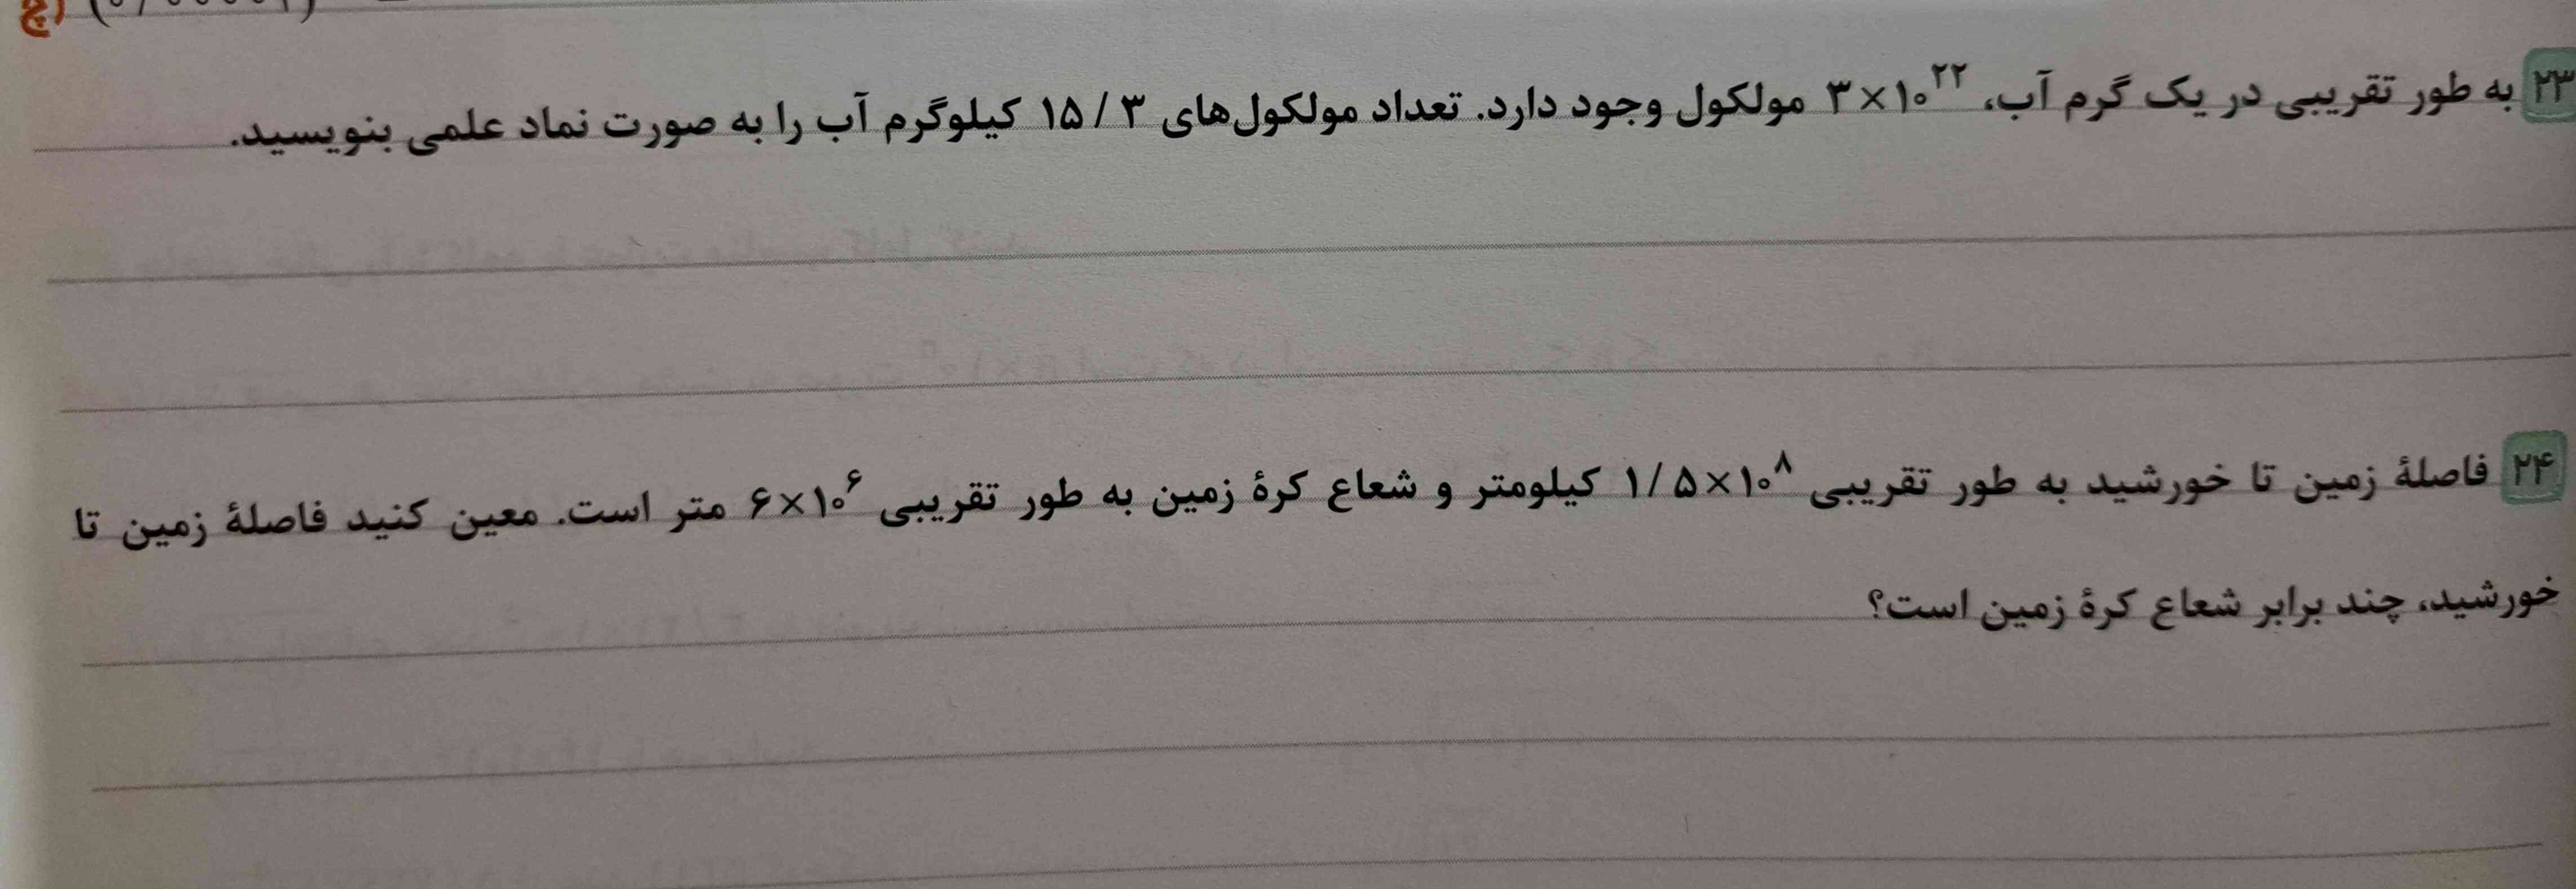 ۲۳ به طور تقریبی در یک گرم آب، ۳×۱۰^۲۲ مولکول وجود دارد. تعداد مولکول‌های ۱۵/۳ کیلوگرم آب را به صورت نماد علمی بنویسید.
۲۴ فاصلهٔ زمین تا خورشید به طور تقریبی ۱/۵×۱۰^۸ کیلومتر و شعاع کرهٔ زمین به طور تقریبی ۶×۱۰^۶ متر است. معین کنید فاصلهٔ زمین تا
خورشید، چند برابر شعاع کرهٔ زمین است؟